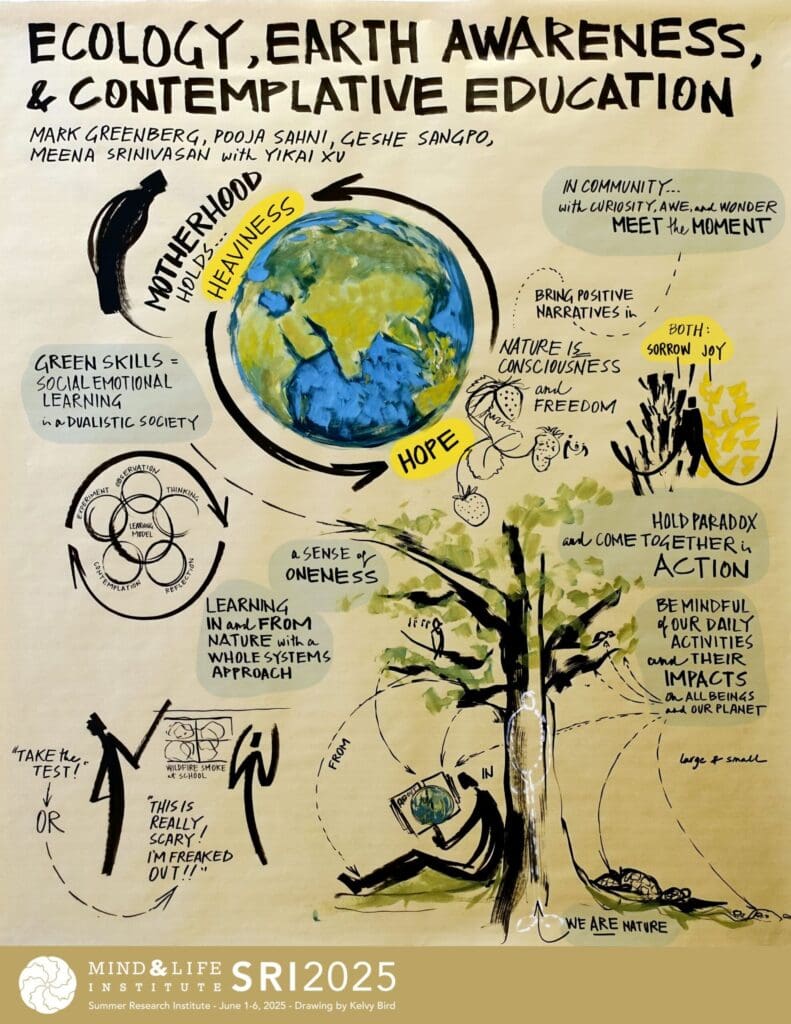 ECOLOGY, EARTH AWARENESS,
& CONTEMPLATIVE EDUCATION
MARK GREENBERG, POOJA SAHNI, GESHE SANGPO,
MEENA SRINIVASAN with YIKAI XU
MOTHERHOOD
HOLDS...
HEAVINESS
HOPE
IN COMMUNITY...
with CURIOSITY, AWE, and WONDER
MEET the MOMENT
BRING POSITIVE
NARRATIVES in
NATURE IS
CONSCIOUSNESS
and
FREEDOM
BOTH:
SORROW JOY
GREEN SKILLS =
SOCIAL EMOTIONAL
LEARNING
in a DUALISTIC SOCIETY
OBSERVATION
EXPERIMENT
THINKING
LEARNING
MODEL
CONTEMPLATION
REFLECTION
a SENSE of
ONENESS
LEARNING
IN and FROM
NATURE with a
WHOLE SYSTEMS
APPROACH
HOLD PARADOX
and COME TOGETHER in
ACTION
BE MINDFUL
of OUR DAILY
ACTIVITIES
and THEIR
IMPACTS
on ALL BEINGS
and OUR PLANET
large & small
"TAKE the
TEST!"
OR
WILDFIRE SMOKE
at SCHOOL
"THIS IS
REALLY
SCARY!
I'M FREAKED
OUT!!"
FROM
IN
WE ARE NATURE
MIND & LIFE
INSTITUTE
SRI2025
Summer Research Institute - June 1-6, 2025 - Drawing by Kelvy Bird